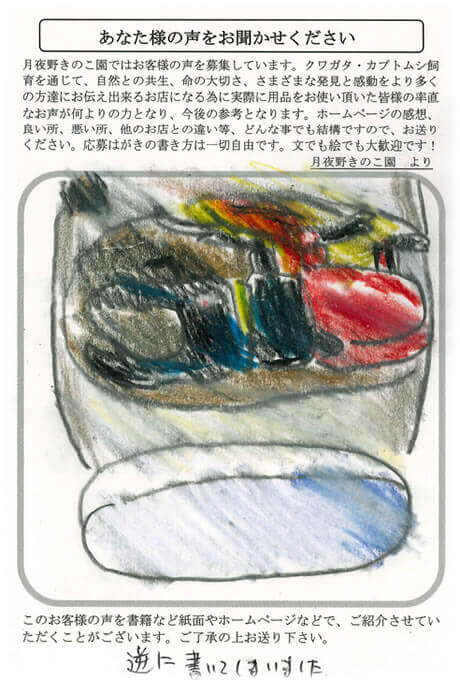 あなた様の声をお聞かせください
月夜野きのこ園ではお客様の声を募集しています。クワガタ・カブトムシ飼
育を通じて、自然との共生、命の大切さ、さまざまな発見と感動をより多く
の方達にお伝え出来るお店になる為に実際に用品をお使い頂いた皆様の率直
なお声が何よりの力となり、今後の参考となります。ホームページの感想、
良い所、悪い所、他のお店との違い等、どんな事でも結構ですので、お送り
ください。応募はがきの書き方は一切自由です。文でも絵でも大歓迎です！
月夜野きのこ園　より
このお客様の声を書籍など紙面やホームページなどで、ご紹介させてい
ただくことがございます。ご了承の上お送り下さい。
逆に書いてしまいました